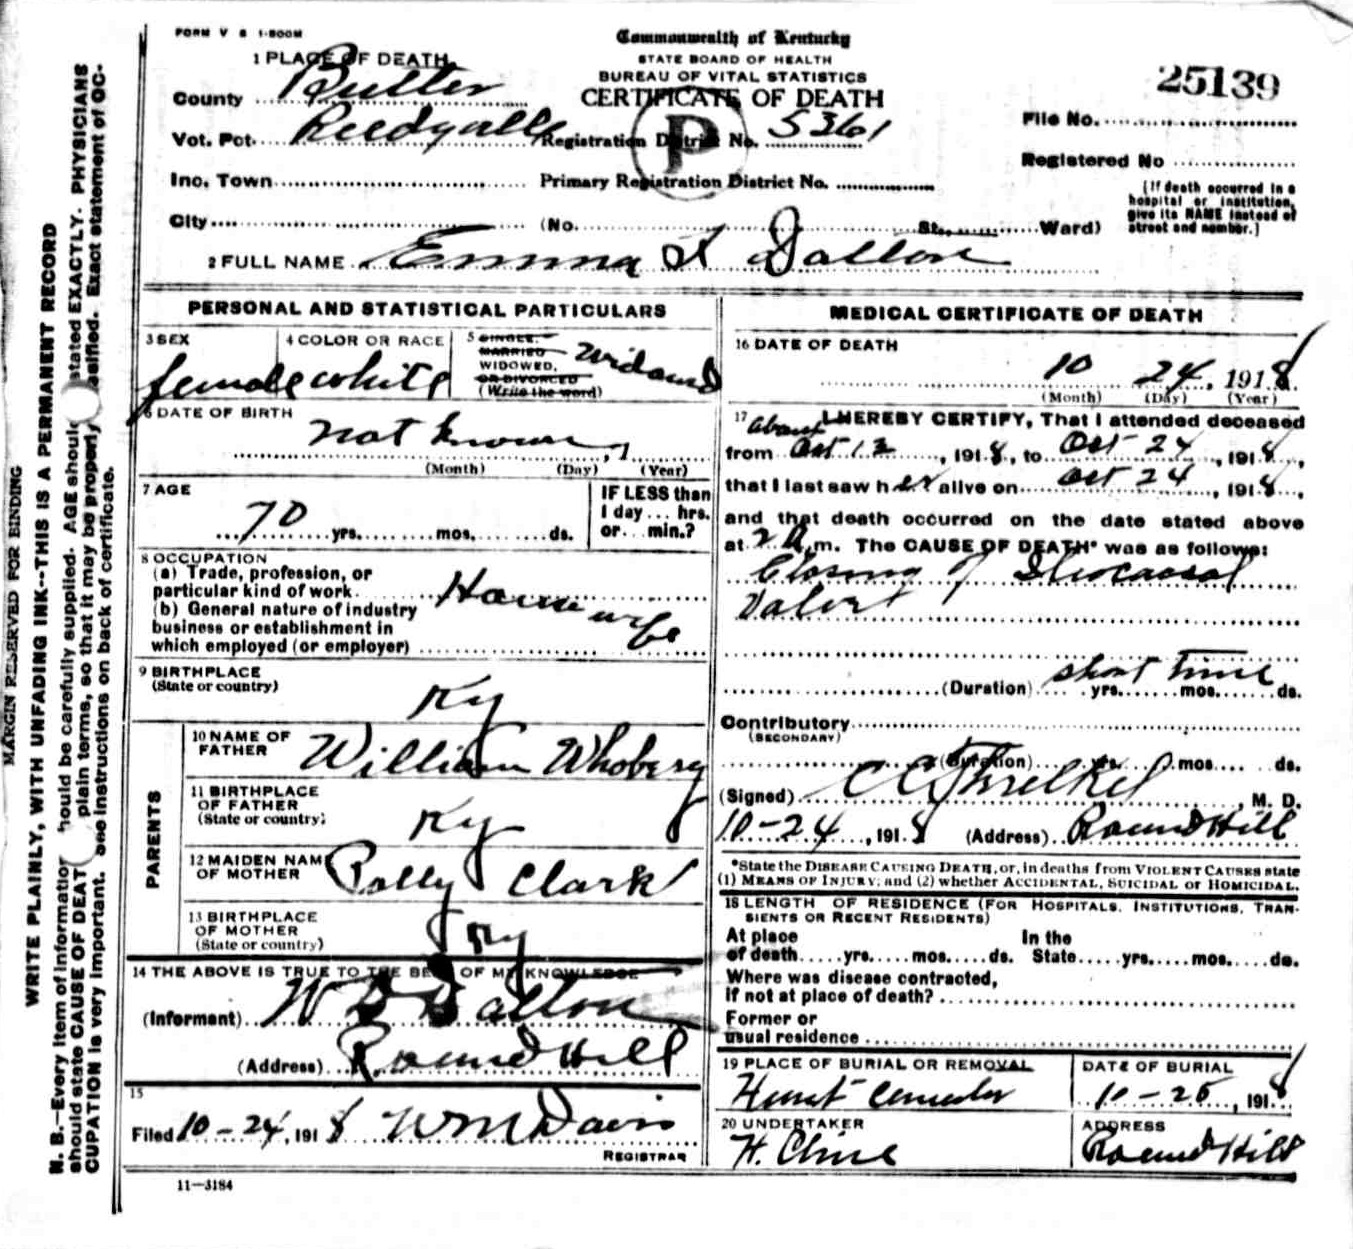 FORM V S 1-500M
Commonwealth of Kentucky
STATE BOARD OF HEALTH
BUREAU OF VITAL STATISTICS
CERTIFICATE OF DEATH
25139
1 PLACE OF DEATH
County Butler
Vot. Pct. Reedyville Registration District No. 5361
File No.
Registered No
Inc. Town Primary Registration District No.
City (No. St., Ward)
(If death occurred in a
hospital or institution,
give its NAME instead of
street and number.)
P
2 FULL NAME Emma Dalton
PERSONAL AND STATISTICAL PARTICULARS
3 SEX
female
4 COLOR OR RACE
white
5 SINGLE.
MARRIED
WIDOWED,
OR DIVORCED
(Write the word)
Widowed
6 DATE OF BIRTH
not known, 1
(Month) (Day) (Year)
7 AGE
70 yrs. mos. ds.
IF LESS than
1 day... hrs.
or... min.?
8 OCCUPATION
(a) Trade, profession, or
particular kind of work House wife
(b) General nature of industry
business or establishment in
which employed (or employer)
9 BIRTHPLACE
(State or country)
Ky
PARENTS
10 NAME OF
FATHER
William Whobery
11 BIRTHPLACE
OF FATHER
(State or country)
Ky
12 MAIDEN NAME
OF MOTHER
Polly Clark
13 BIRTHPLACE
OF MOTHER
(State or country)
Ky
14 THE ABOVE IS TRUE TO THE BEST OF MY KNOWLEDGE
(Informant) W D Dalton
(Address) Round Hill
15
Filed 10-24, 1918 Wm Davis
REGISTRAR
11—3184
MEDICAL CERTIFICATE OF DEATH
16 DATE OF DEATH
10 24, 1918
(Month) (Day) (Year)
17 I HEREBY CERTIFY, That I attended deceased
about
from Oct 12, 1918, to Oct 24, 1918,
that I last saw her alive on Oct 24, 1918,
and that death occurred on the date stated above
at 2 A.m. The CAUSE OF DEATH* was as follows:
Closing of
(Duration) short time yrs. mos. ds.
Contributory
(SECONDARY)
(Duration) yrs. mos. ds.
(Signed) C C Threlkel, M. D.
10-24, 1918 (Address) Round Hill
*State the DISEASE CAUSING DEATH, or, in deaths from VIOLENT CAUSES state
(1) MEANS OF INJURY; and (2) whether ACCIDENTAL, SUICIDAL or HOMICIDAL.
18 LENGTH OF RESIDENCE (FOR HOSPITALS, INSTITUTIONS, TRAN-
SIENTS OR RECENT RESIDENTS)
At place In the
of death yrs. mos. ds. State yrs. mos. ds.
Where was disease contracted,
if not at place of death?
Former or
usual residence
19 PLACE OF BURIAL OR REMOVAL
DATE OF BURIAL
10-25, 1918
20 UNDERTAKER
H. Cline
ADDRESS
Round Hill
MARGIN RESERVED FOR BINDING
WRITE PLAINLY, WITH UNFADING INK--THIS IS A PERMANENT RECORD
N. B.—Every item of information should be carefully supplied. AGE should stated EXACTLY. PHYSICIANS
should state CAUSE OF DEATH plain terms, so that it may be properly classified. Exact statement of OC-
CUPATION is very important. See instructions on back of certificate.